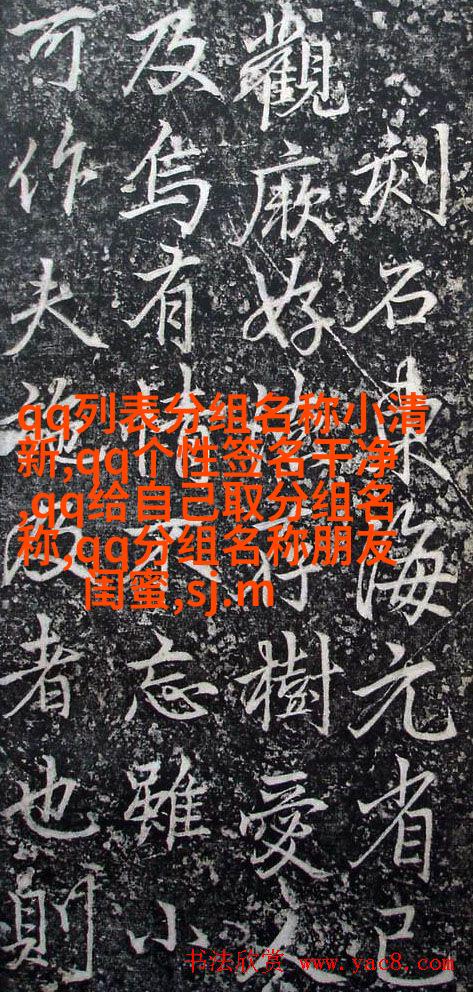 刻石東海元省己
觀厥好存樹愛
及烏有情忘雖小
可作夫者也則
qq列表分组名称小清
新,qq个性签名干净
,qq给自己取分组名
称,qq分组名称朋友
闺蜜,sj.m
书法欣赏 www.yac8.com